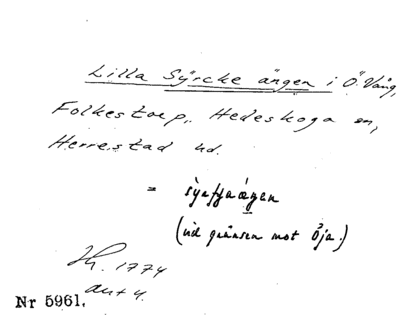 Lilla Syrcke ängen i Ö. Vång,
Folkestorp, Hedeskoga sn,
Herrestad hd.
=
(vid gränsen mot Öja.)
Kh. 1774
ant 4.
Nr 5961.